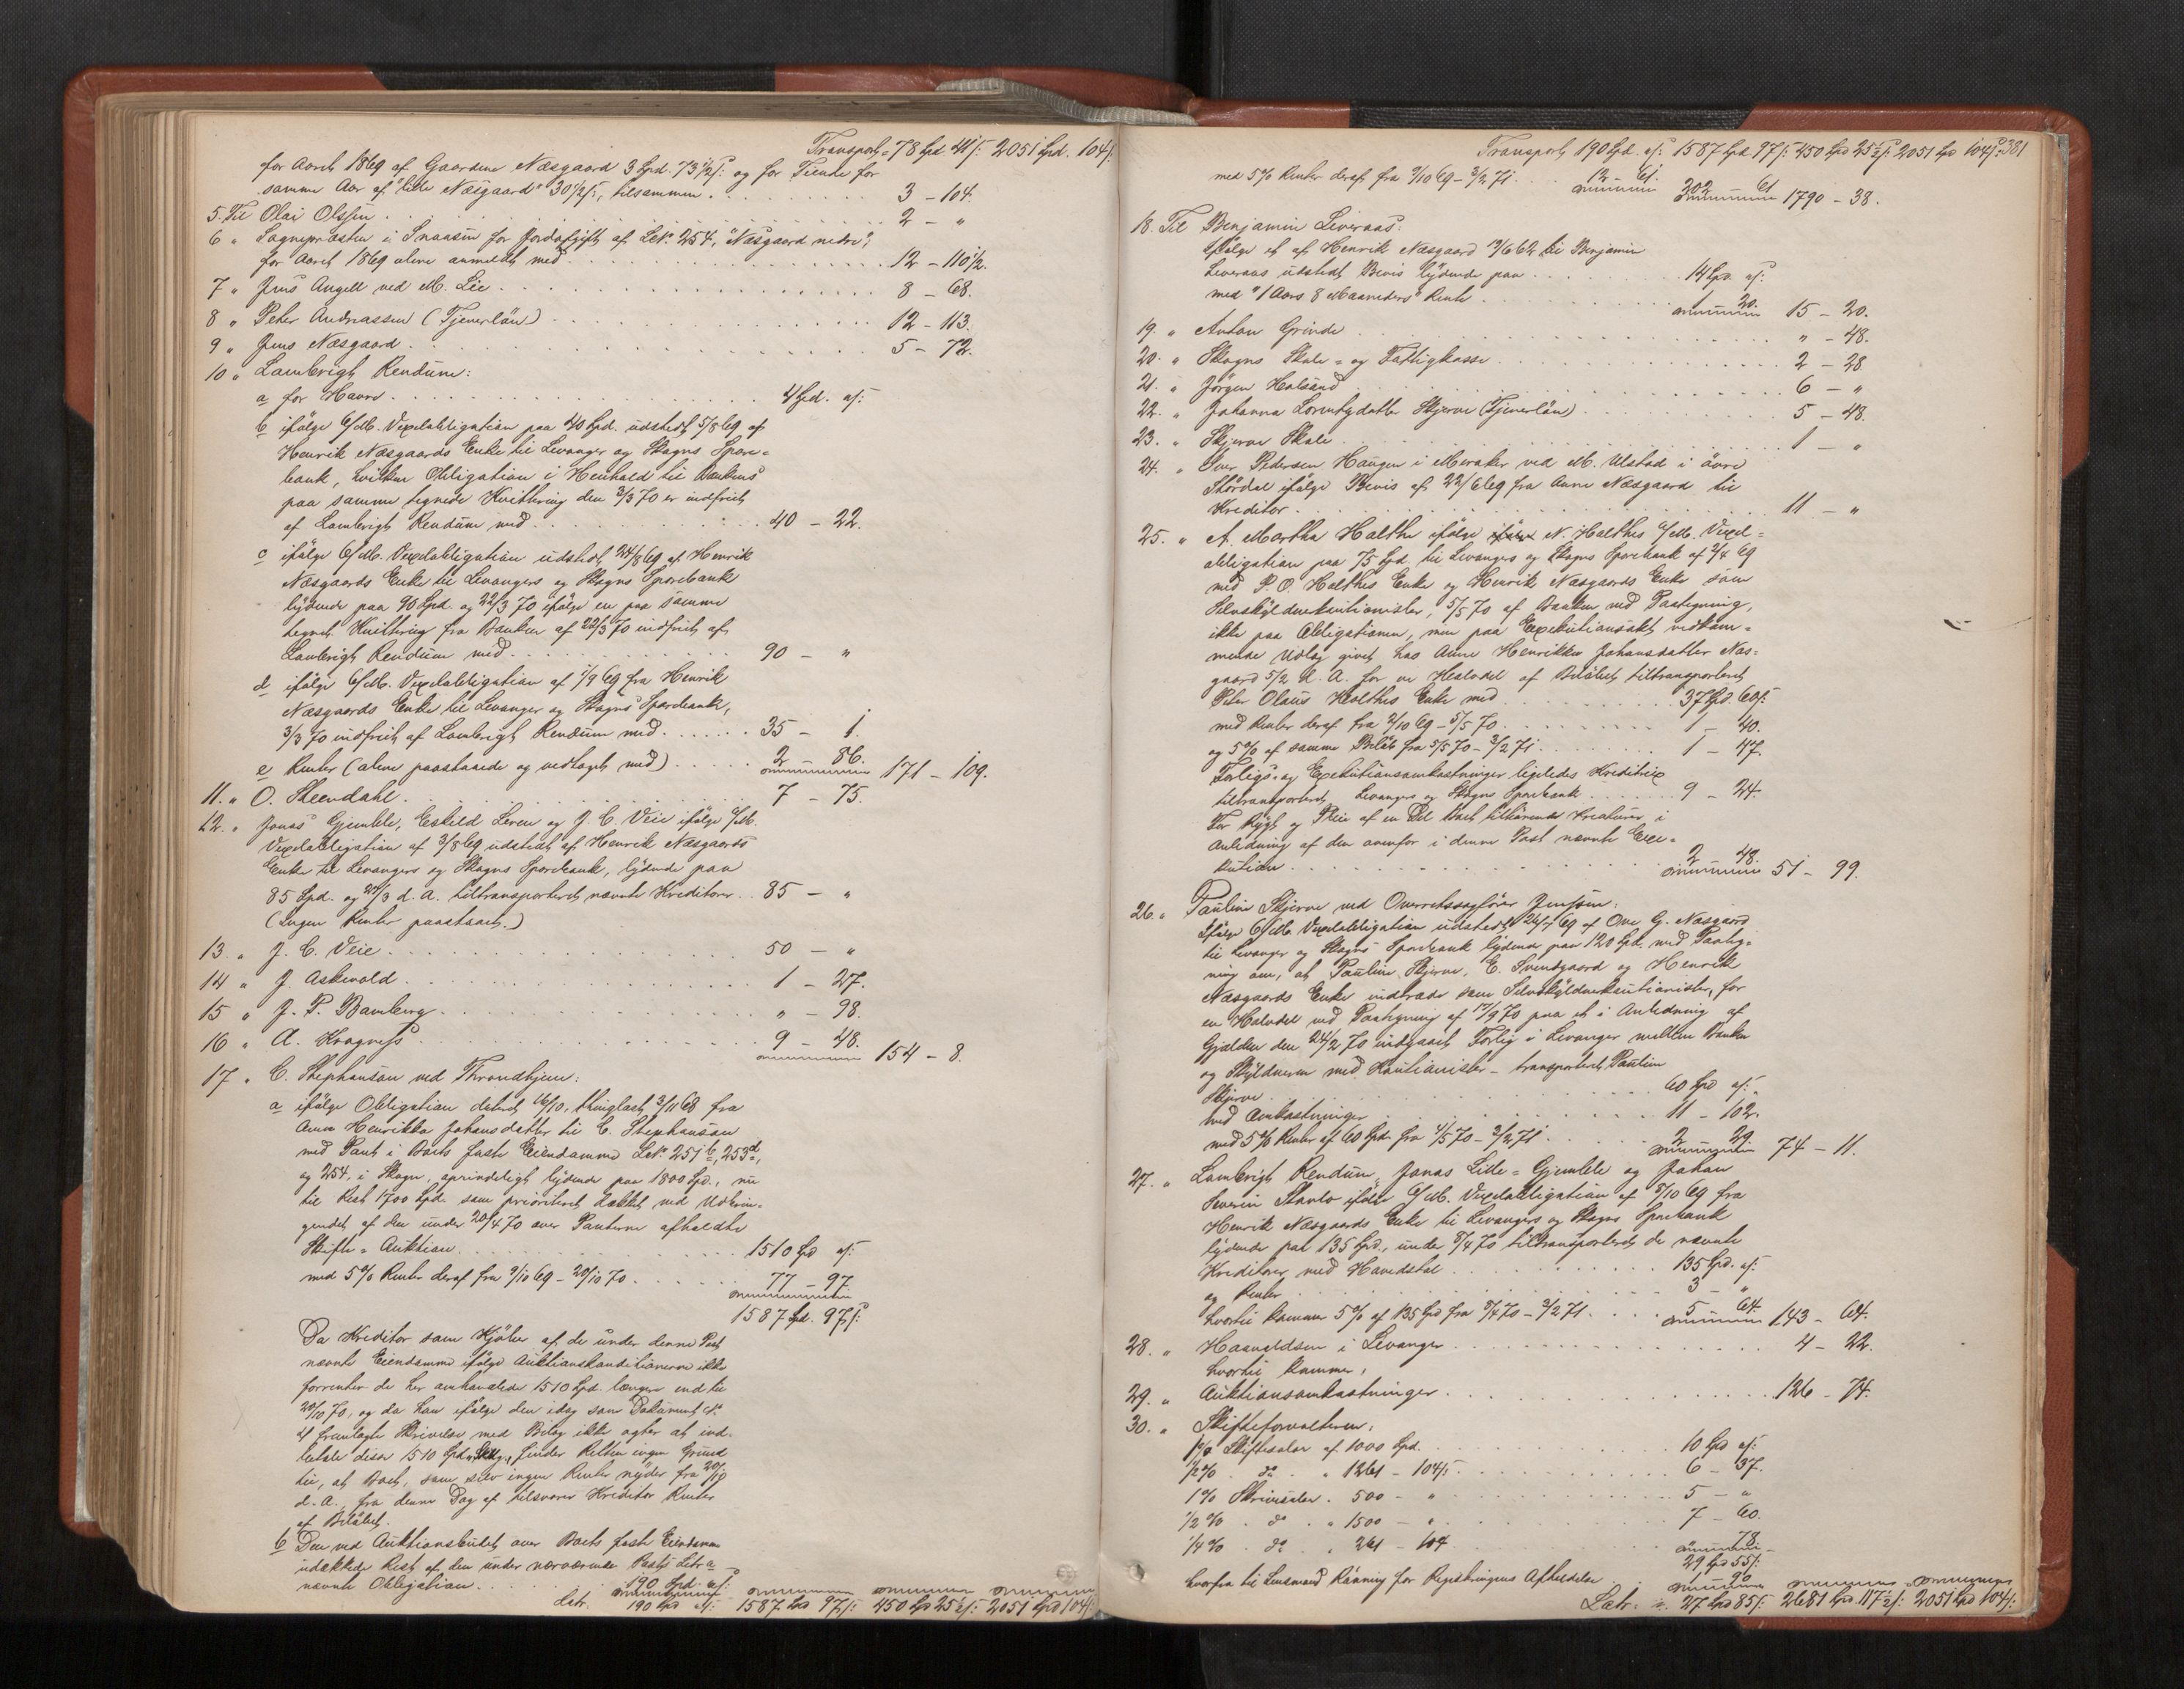 Transport 78 Spd 41 ß: 2051 Spd. 104 ß:
for Aaret 1869 af Gaardene Næsgaard 3 Spd. 73 1/2 ß: og for Tiende for
samme Aar af "lille Næsgaard" 30 1/2 ß:, tilsammen . . . 3 - 104.
5. Til Olai Olssen . . . 2 - "
6 " Sognepræsten i Snaasen for Jordafgift af LNo. 254, "Næsgaard nedre",
for Aaret 1869 alene anmeldt med . . . 12 - 110 1/2.
7 " Jens Angell ved M. Lie . . . 8 - 68.
8 " Peter Andreassen (Tjenerløn) . . . 12 - 113.
9 " Jens Næsgaard . . . 5 - 72.
10 " Lambrigt Rendum:
a for Havre . . . 4 Spd. " ß:
b ifølge 6/Md. Vexelobligation paa 40 Spd. udstedt 5/8 69 af
Henrik Næsgaards Enke til Levanger og Skogns Spare-
bank, hvilken Obligation i Henhold til Bankens
paa samme tegnede Kvittering den 3/3 70 er indfriet
af Lambrigt Rendum med . . . 40 - 22.
c ifølge 6/Md. Vexelobligation udstedt 24/8 69 af Henrik
Næsgaards Enke til Levangers og Skogns Sparebank
lydende paa 90 Spd. og 22/3 70 ifølge en paa samme
tegnet Kvittering fra Banken af 22/3 70 indfriet af
Lambrigt Rendum med . . . 90 - "
d ifølge 6/Md. Vexelobligation af 7/9 69 fra Henrik
Næsgaards Enke til Levanger og Skogns Sparebank,
3/3 70 indfriet af Lambrigt Rendum med . . . 35 - 1.
e Renter (alene paastaaede og vedtaget med) . . . 2 86. 171 - 109.
11. " O. Steendahl . . . 7 - 75.
12. " Jonas Gjemble, Eskild Leren og J. C. Veie ifølge 6/Md.
Vexelobligation af 3/8 69 udstedt af Henrik Næsgaards
Enke til Levangers og Skogns Sparebank, lydende paa
85 Spd. og 24/3 d. A. tiltransporteret nævnte Kreditorer . . 85 - "
(Ingen Renter paastaaet.)
13. " J. C. Veie . . . 50 - "
14 " J. Askevold . . . 1 - 27.
15 " J. P. Bamberg . . . " - 98.
16 " A. Kragness . . . 9 - 48. 154 - 8.
17 " C. Stephanson ved Throndhjem:
a ifølge Obligation dateret 16/10, thinglæst 3/11 68 fra
Anna Henrikka Johansdatter til C. Stephanson
med Pant i Boets faste Eiendomme LNo. 251 b, 253 d,
og 254, i Skogn, oprindeligt lydende paa 1800 Spd., nu
til Rest 1700 Spd. som prioriteret dækket ved Udbrin-
gendet af den under 20/4 70 over Panterne afholdte
Skifte-Auktion . . . 1510 Spd " ß:
med 5% Renter deraf fra 9/10 69 - 20/10 70 . . . 77 - 97.
1587 Spd. 97 ß:
Da Kreditor som Kjøber af de under denne Post
nævnte Eiendomme ifølge Auktionskonditionerne ikke
forrenter de her omhandlede 1510 Spd. længere end til
20/10 70, og da han ifølge den idag som Dokument No.
4 fremlagte Skrivelse med Bilag ikke agter at ind-
betale disse 1510 Spd., finder Retten ingen Grund
til, at Boet, som selv ingen Renter nyder fra 20/10
d. A., fra denne Dag af tilsvarer Kreditor Renter
af Beløbet.
b Den ved Auktionsbudet over Boets faste Eiendomme
udækkede Rest af den under nærværende Posts Litr a
nævnte Obligation . . . 190 Spd. " ß:
Latr. 190 Spd " ß: 1587 Spd 97 ß: 450 Spd 25 1/2 ß: 2051 Spd 104 ß:
Transport 190 Spd. " ß: 1587 Spd 97 ß: 450 Spd 25 1/2 ß: 2051 Spd 104 ß: 381
med 5% Renter deraf fra 9/10 69 - 3/2 71 . . . 12 - 61. 202 61 1790 - 38.
18. Til Benjamin Liveraas:
ifølge et af Henrik Næsgaard 19/6 62 til Benjamin
Leveraas udstedt Bevis lydende paa . . . 14 Spd. " ß:
med "1 Aars 8 Maaneders" Rente . . . 1 20. 15 - 20.
19. " Anton Grinde . . . " - 48.
20. " Skogns Skole- og Fattigkasse . . . 2 - 28
21. " Jørgen Halsand . . . 6 - "
22. " Johanna Lorentsdatter Skjerve (Tjenerløn) . . . 5 - 48.
23. " Skjerve Skole . . . 1 - "
24. " Iver Pedersen Haugen i Meraker ved M. Ulstad i øvre
Størdal ifølge Bevis af 22/6 69 fra Anne Næsgaard til
Kreditor . . . 11 - "
25. " A. Martha Halthe ifølge N. Halthes 6/Md. Vexel-
obligation paa 75 Spd. til Levangers og Skogns Sparebank af 2/4 69
med P. O. Halthes Enke og Henrik Næsgaards Enke som
Selvskyldnerkautionister, 5/5 70 af Banken ved Paategning,
ikke paa Obligationen, men paa Exekutionsakt vedkom-
mende Udlæg givet hos Anne Henrikka Johansdatter Næs-
gaard 5/2 d. A. for en Halvdel af Beløbet tiltransporteret
Peter Olaus Halthes Enke med . . . 37 Spd. 60 ß:
med Renter deraf fra 2/10 69 - 5/5 70 . . . 1 - 40.
og 5% af samme Beløb fra 5/5 70 - 3/2 71 . . . 1 - 47.
Forligs- og Exekutionsomkostninger ligeledes Kreditrix
tiltransporteret Levangers og Skogns Sparebank . . . 9 - 24.
For Røgt og Pleie af en Del Boet tilhørende Kreaturer i
Anledning af den ovenfor i denne Post nævnte Exe-
kution . . . 2 48. 51 - 99.
26. " Pauline Skjerve ved Overretssagfører Jenssen:
Ifølge 6/Md. Vexelobligation udstedt 24/7 69 af Ove G. Næsgaard
til Levanger og Skogns Sparebank lydende paa 120 Spd. med Paateg-
ning om, at Pauline Skjerve, E. Svendgaard og Henrik
Næsgaards Enke indtræde som Selvskyldnerkautionister, for
en Halvdel ved Paategning af 17/9 70 paa et i Anledning af
Gjælden den 24/2 70 indgaaet Forlig i Levanger mellem Banken
og Skyldneren med Kautionister - transporteret Pauline
Skjerve . . . 60 Spd " ß:
med Omkostninger . . . 11 - 102.
med 5% Renter af 60 Spd. fra 4/5 70 - 3/2 71 . . . 2 29. 74 - 11.
27. " Lambrigt Rendum, Jonas Lille-Gjemble og Johan
Severin Stavlo ifølge 6/Md. Vexelobligation af 5/10 69 fra
Henrik Næsgaards Enke til Levangers og Skogns Sparebank
lydende paa 135 Spd., under 7/4 70 tiltransporteret de nævnte
Kreditorer med Hovedstol . . . 135 Spd. " ß:
og Renter . . . 3 - "
hvortil kommer 5% af 135 Spd fra 7/4 70 - 3/2 71 . . . 5 64. 143 - 64.
28. " Haavaldsen i Levanger . . . 4 - 22.
hvortil kommer:
29. " Auktionsomkostninger . . . 126 - 74.
30. " Skifteforvalteren:
1% Skiftesalær af 1000 Spd. . . . 10 Spd " ß:
1/2% . do . " 1261 - 104 ß: . . . 6 - 37.
1% Skrivesalær . 500 - " . . . 5 - "
1/2% . do . " 1500 - " . . . 7 - 60.
1/4% . do . " 261 - 104 . . . 78.
29 Spd 55 ß:
hvorfra til Lensmand Rønning for Registreringens Afholdelse . . 90
Latr. 27 Spd 85 ß: 2681 Spd. 117 1/2 ß: 2051 Spd 104 ß: